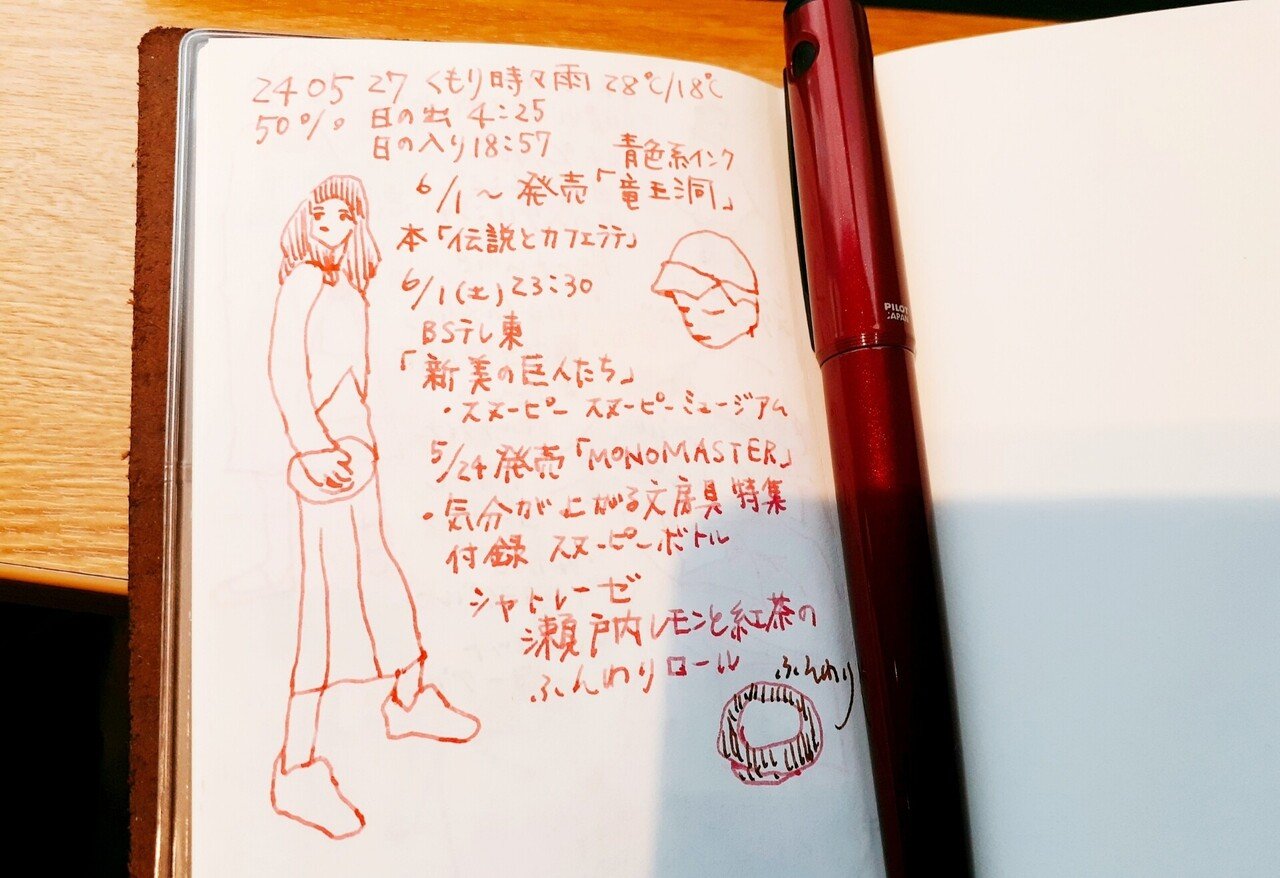 24 05 27 くもり時々雨 28℃/18℃
50% 日の出 4:25
日の入り18:57
青色系インク
6/1〜発売「竜王洞」
本「伝説とカフェラテ」
6/1(土)23:30
BSテレ東
「新美の巨人たち」
・スヌーピー スヌーピーミュージアム
5/24発売「MONOMASTER」
・気分が上がる文房具特集
付録 スヌーピーボトル
シャトレーゼ
瀬戸内レモンと紅茶の
ふんわりロール
ふんわり
PILOT
JAPAN